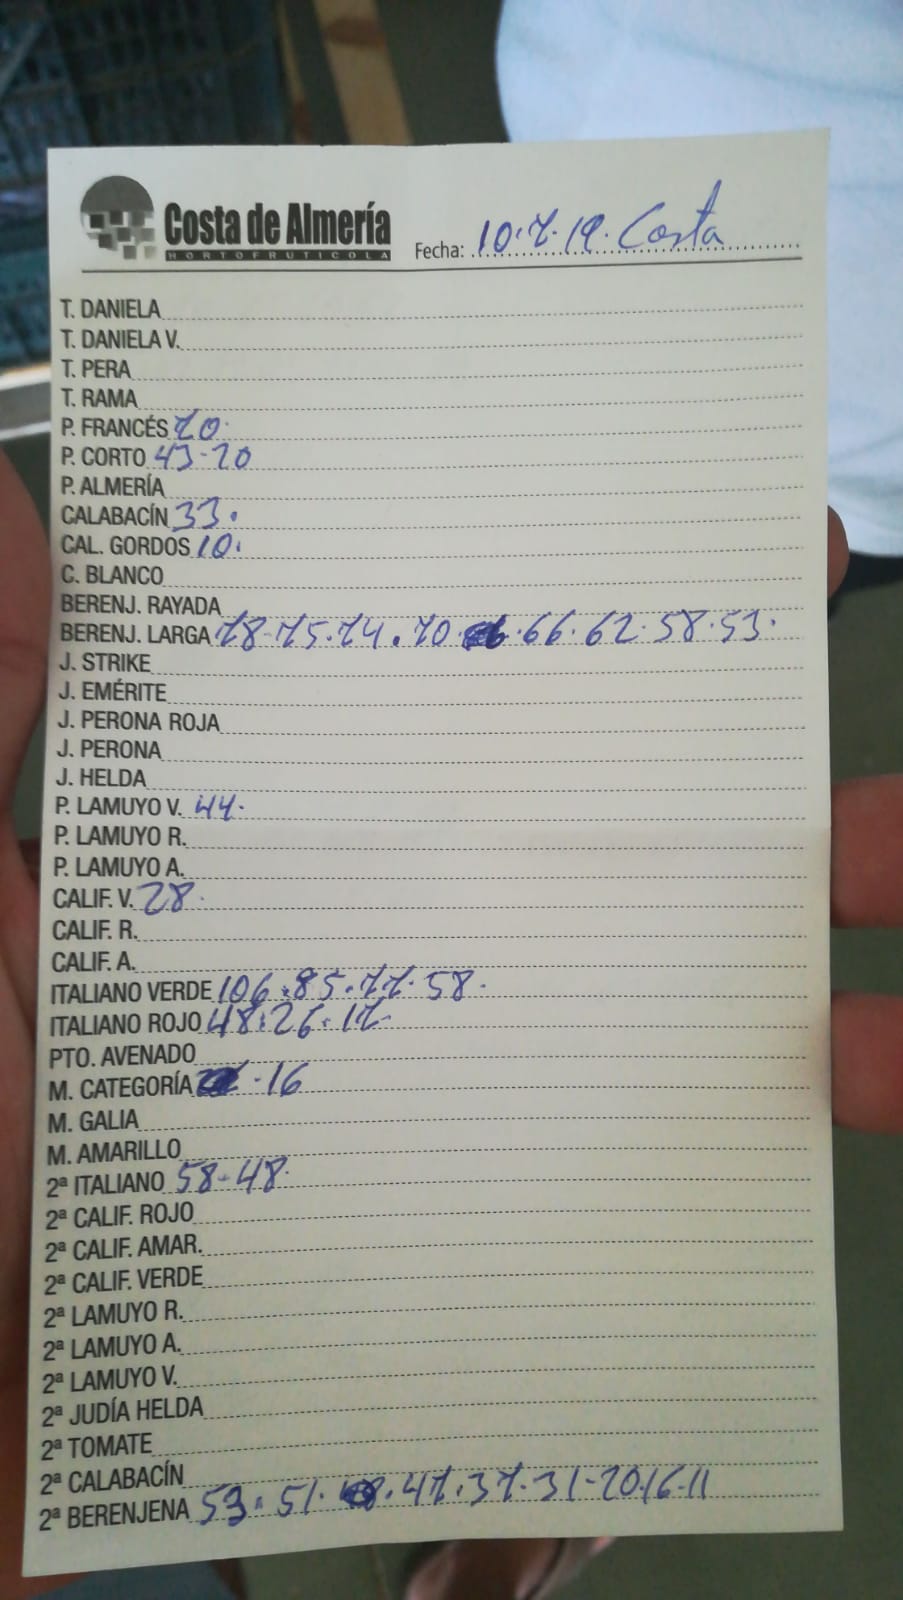 Costa de Almería
HORTOFRUTICOLA
Fecha: 10.7.19. Costa
T. DANIELA
T. DANIELA V.
T. PERA
T. RAMA
P. FRANCÉS 70.
P. CORTO 43-20
P. ALMERÍA
CALABACÍN 33.
CAL. GORDOS 10.
C. BLANCO
BERENJ. RAYADA
BERENJ. LARGA 78-75.74.70. 66.62.58.53.
J. STRIKE
J. EMÉRITE
J. PERONA ROJA
J. PERONA
J. HELDA
P. LAMUYO V. 44.
P. LAMUYO R.
P. LAMUYO A.
CALIF. V. 28.
CALIF. R.
CALIF. A.
ITALIANO VERDE 106.85.77.58.
ITALIANO ROJO 48.26.17-
PTO. AVENADO
M. CATEGORÍA .16
M. GALIA
M. AMARILLO
2ª ITALIANO 58-48.
2ª CALIF. ROJO
2ª CALIF. AMAR.
2ª CALIF. VERDE
2ª LAMUYO R.
2ª LAMUYO A.
2ª LAMUYO V.
2ª JUDÍA HELDA
2ª TOMATE
2ª CALABACÍN
2ª BERENJENA 53.51. .47.37.31-20.16-11